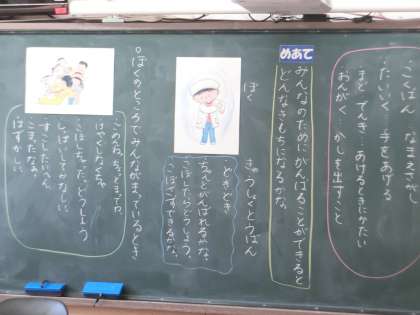 ・こくばん　なまえさがし
・たいいく…手をあげる
まど　でんき…あけるときにかたい
おんがく…かしを出すこと
めあて
みんなのためにがんばることができると
どんなきもちになるかな。
ぼく　きゅうしょくとうばん
どきどき
ちゃんとがんばれるかな。
こぼしたらどうしよう。
こぼさずできるかな。
ぼくのところでみんながまっているとき
ごめんね、ちょっとまってね。
はやくしなくちゃ。
こぼしちゃった。どうしよう
しっぱいしてかなしい。
すごくたいへん。
こまったなあ。
はずかしい。